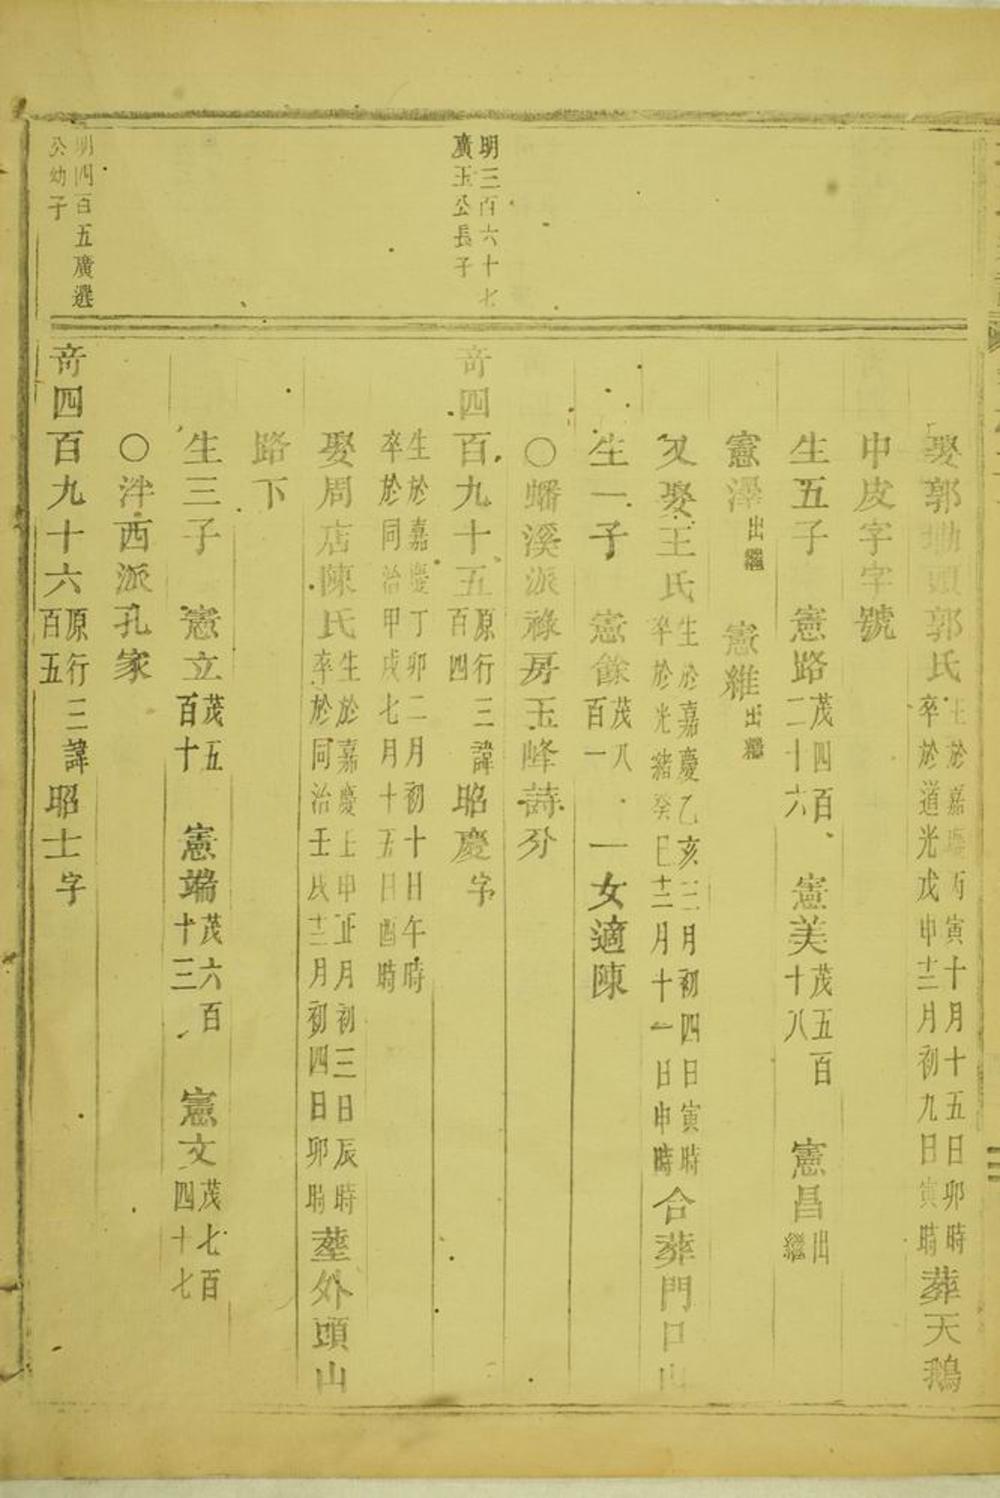 娶郭坳頭郭氏生於嘉慶丙寅十月十五日卯時卒於道光戊申十二月初九日寅時葬天鵝
中皮字字號
生五子 憲路茂四百二十六 憲美茂五百十八 憲昌出繼
憲澤出繼 憲雑出繼
又娶王氏生於嘉慶乙亥三月初四日寅時卒於光緒癸巳十二月十一日申時合葬門口山
生一子 憲餘茂八百一 一女適陳
○蟠溪派祿房玉峰詩分
明三百六十七廣玉公長子
奇四百九十五原行三百四諱昭慶字
生於嘉慶丁卯二月初十日午時卒於同治甲戌七月十五日酉時
娶周店陳氏生於嘉慶 申正月初三日辰時卒於同治壬戌十二月初四日卯時葬外頭山
路下
生三子 憲立茂五百十 憲端茂六百十三 憲文茂七百四十七
○泮西派孔家
明四百五廣選公幼子
奇四百九十六原行三百五諱昭士字